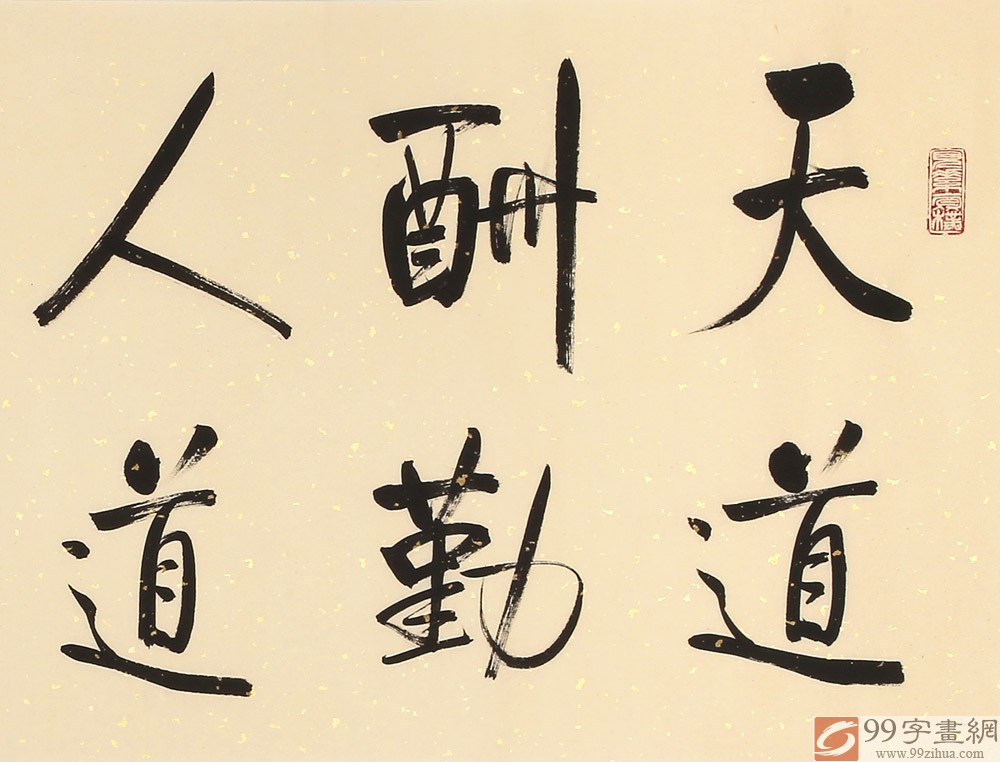 天道
酬勤
人道
99字畫網
www.99zihua.com